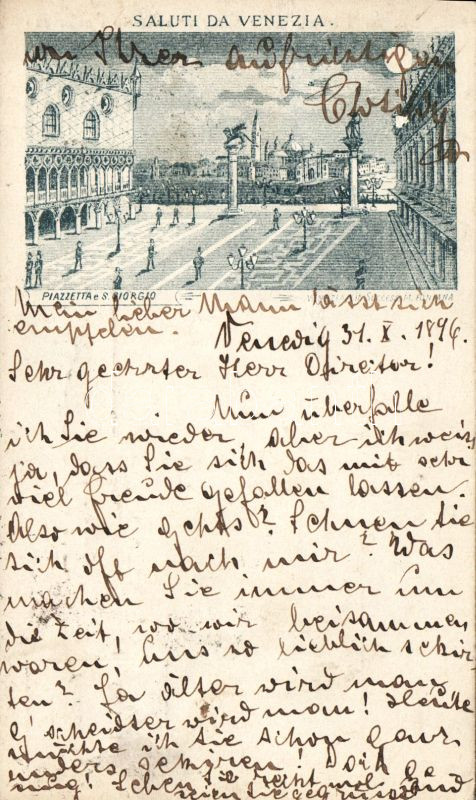 SALUTI DA VENEZIA.
von Ihrer aufrichtigen
PIAZZETTA e S. GIORGIO
Mein lieber Mann lässt sich
empfelen.
Venedig 31. X. 1896.
Sehr geehrter Herr Director!
Nun überfalle
ich Sie wieder, aber ich weis
ja, dass Sie sich das mit sehr
viel Freude gefallen lassen.
Also wie gehts? Sehnen Sie
sich oft nach mir? Was
machen Sie immer um
die Zeit, wo wir beisammen
waren! Uns so lieblich
ten? Ja älter wird man
g'scheidter wird man! Heute
möchte ich Sie schon ganz
anders! Doch
Leben Sie recht und